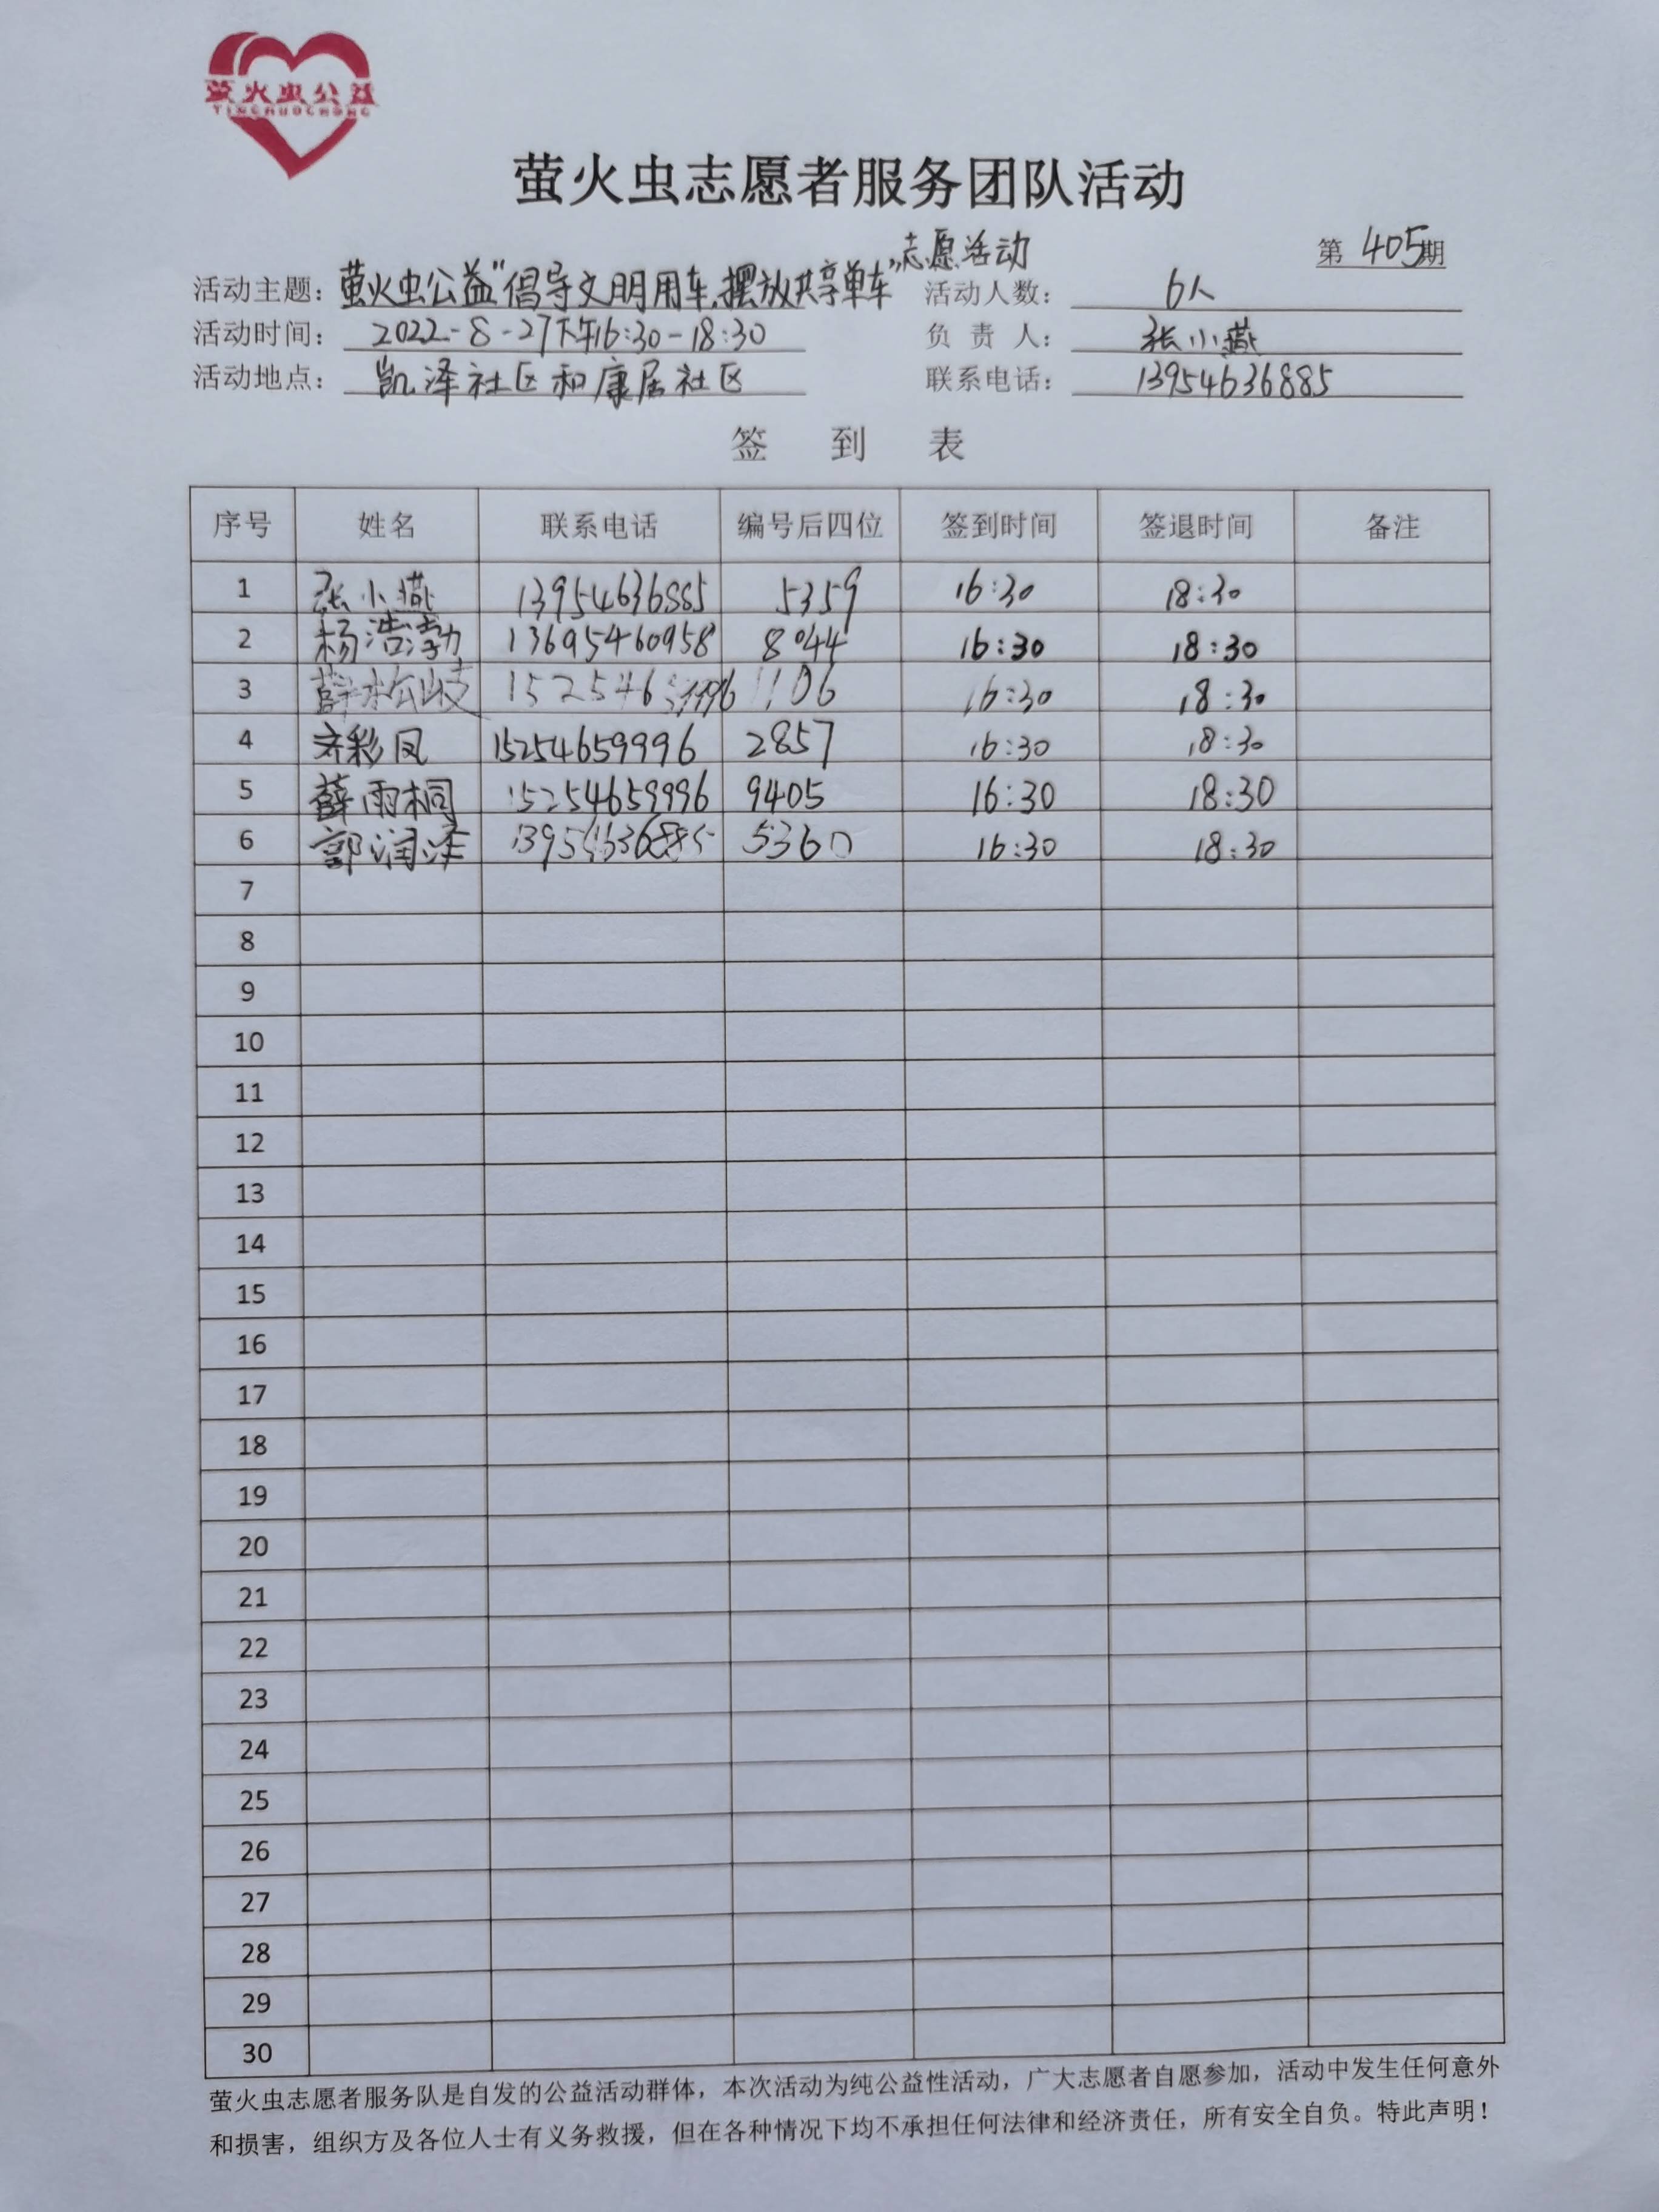 萤火虫公益
YINGHUOCHONG
萤火虫志愿者服务团队活动
第 405期
活动主题：萤火虫公益"倡导文明用车,摆放共享单车"志愿活动 活动人数：6人
活动时间：2022-8-27下午16:30-18:30 负责人：张小燕
活动地点：凯泽社区和康居社区 联系电话：13954636885
签到表
序号 姓名 联系电话 编号后四位 签到时间 签退时间 备注
1 张小燕 13954636885 5359 16:30 18:30
2 杨浩渤 13695460958 8044 16:30 18:30
3 1106 16:30 18:30
4 齐彩凤 15254659996 2857 16:30 18:30
5 薛雨桐 15254659996 9405 16:30 18:30
6 郭润泽 13954636885 5360 16:30 18:30
7
8
9
10
11
12
13
14
15
16
17
18
19
20
21
22
23
24
25
26
27
28
29
30
萤火虫志愿者服务队是自发的公益活动群体，本次活动为纯公益性活动，广大志愿者自愿参加，活动中发生任何意外
和损害，组织方及各位人士有义务救援，但在各种情况下均不承担任何法律和经济责任，所有安全自负。特此声明！